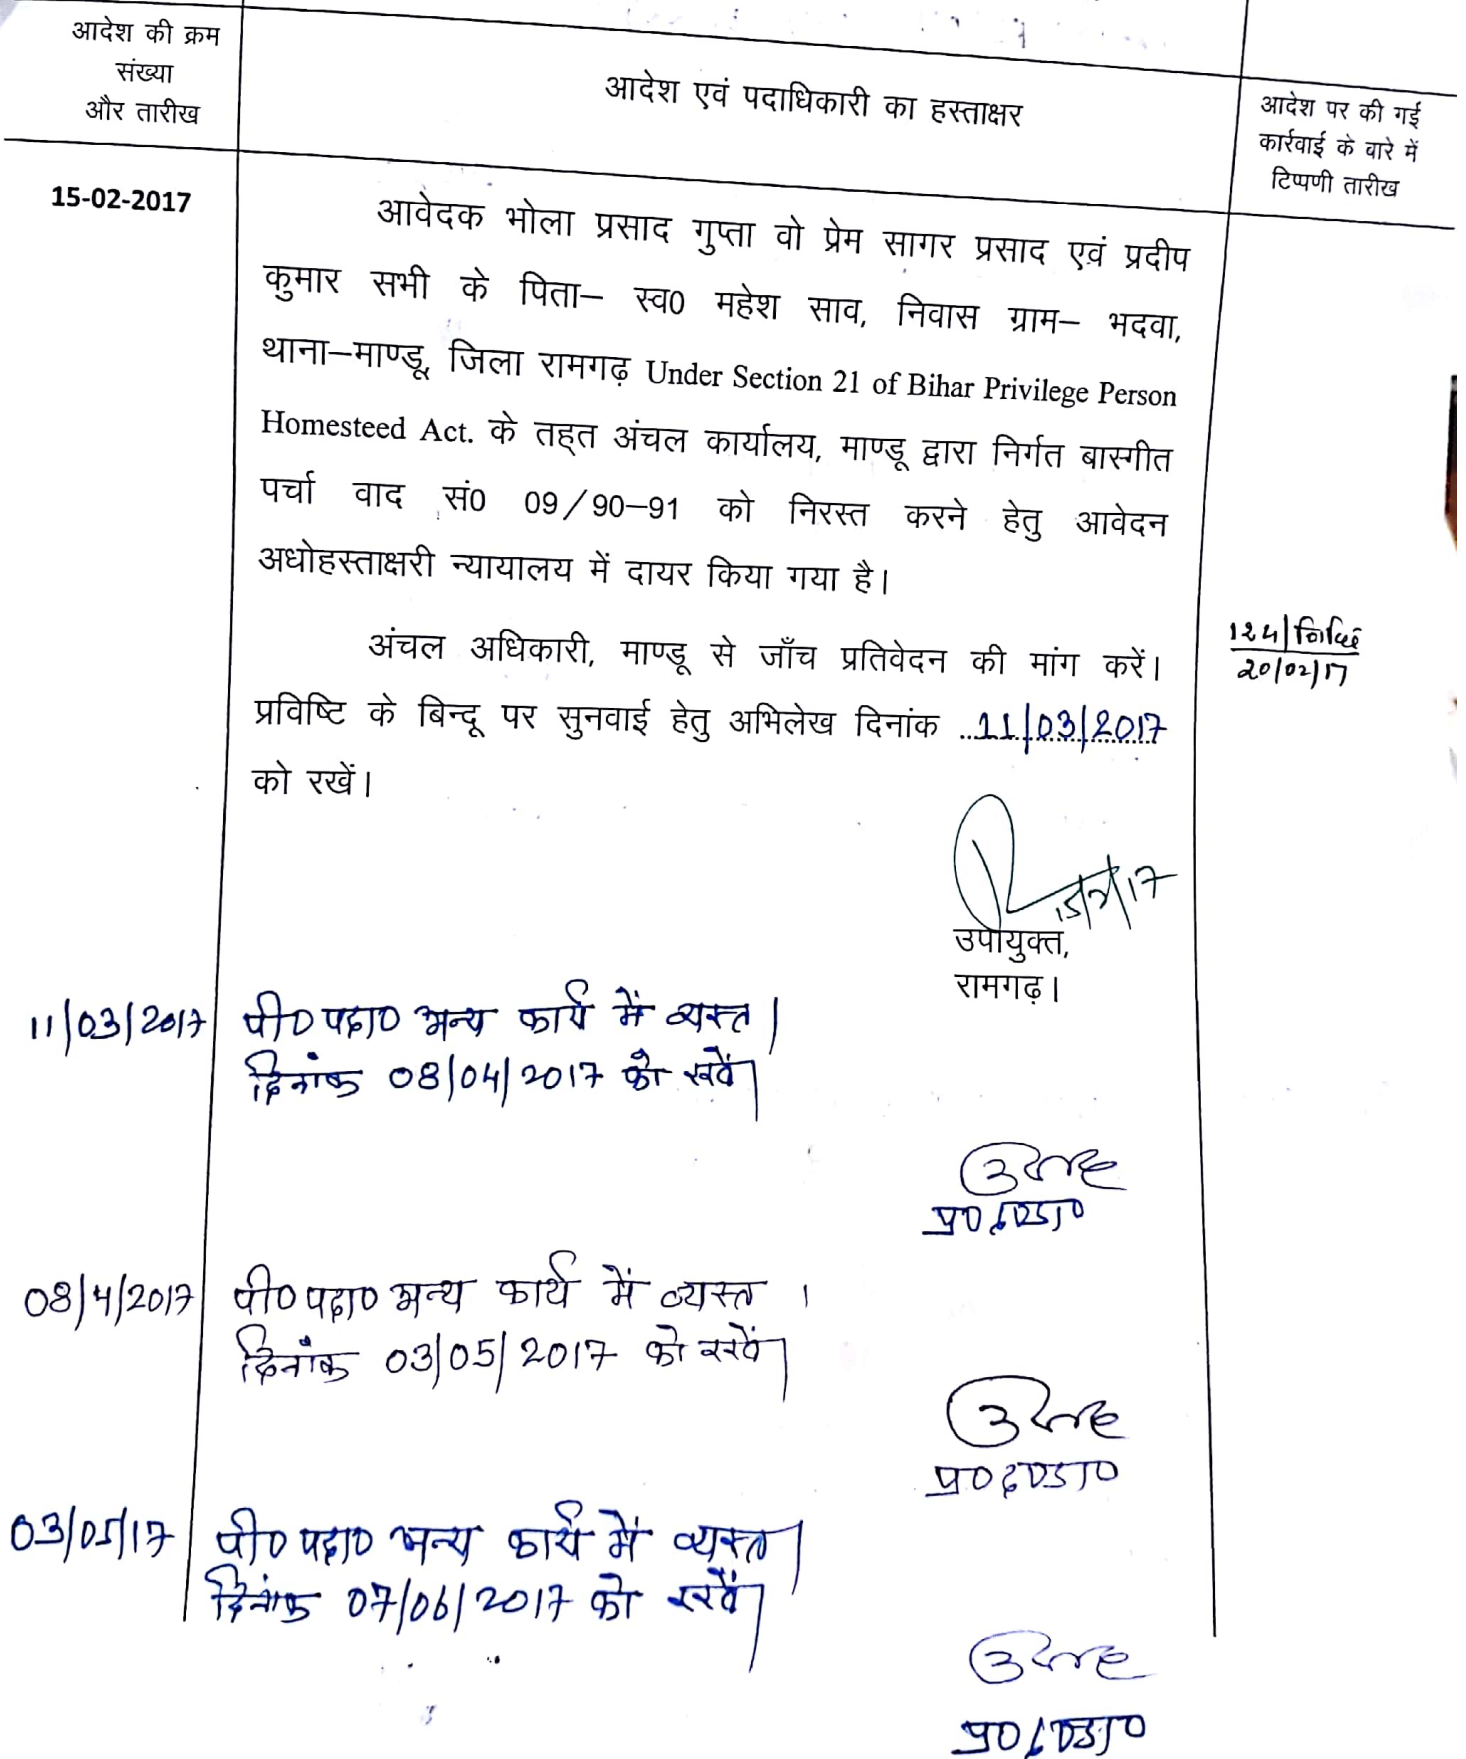 आदेश की क्रम
संख्या
और तारीख
आदेश एवं पदाधिकारी का हस्ताक्षर
आदेश पर की गई
कार्रवाई के बारे में
टिप्पणी तारीख
15-02-2017
आवेदक भोला प्रसाद गुप्ता वो प्रेम सागर प्रसाद एवं प्रदीप
कुमार सभी के पिता– स्व0 महेश साव, निवास ग्राम– भदवा,
थाना–माण्डू, जिला रामगढ़ Under Section 21 of Bihar Privilege Person
Homesteed Act. के तह्त अंचल कार्यालय, माण्डू द्वारा निर्गत बास्गीत
पर्चा वाद सं0 09/90–91 को निरस्त करने हेतु आवेदन
अधोहस्ताक्षरी न्यायालय में दायर किया गया है।
अंचल अधिकारी, माण्डू से जाँच प्रतिवेदन की मांग करें।
प्रविष्टि के बिन्दू पर सुनवाई हेतु अभिलेख दिनांक ..11/03/2017
को रखें।
124/
20/02/17
15/2/17
उपायुक्त,
रामगढ़।
11/03/2017 पी0 पदा0 अन्य कार्य में व्यस्त।
दिनांक 08/04/2017 को रखें।
08/4/2017 पी0 पदा0 अन्य कार्य में व्यस्त ।
दिनांक 03/05/2017 को रखें।
03/05/17 पी0 पदा0 अन्य कार्य में व्यस्त।
दिनांक 07/06/2017 को रखें।